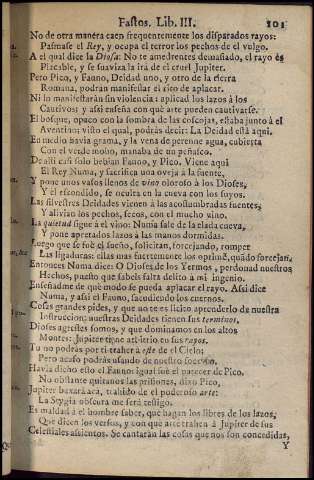 Fastos. Lib. III. 101
No de otra manera caen frequentemente los disparados rayos:
Pasmase el Rey, y ocupa el terror los pechos de el vulgo.
A el qual dice la Diosa: No te amedrentes demasiado, el rayo es
Placable, y se suaviza la ira de el cruel Jupiter.
Pero Pico, y Fauno, Deidad uno, y otro de la tierra
Romana, podràn manifestar el rito de aplacar.
Ni lo manifestaràn sin violencia: aplicad los lazos à los
Cautivos: y asi enseña con què arte pueden cautivarse.
El bosque, opaco con la sombra de las coscojas, estaba junto à el
Aventino: visto el qual, podràs decir: La Deidad està aqui.
En medio havia grama, y la vena de perenne agua, cubierta
Con el verde moho, manaba de un peñasco.
De alli casi solo bebian Fauno, y Pico. Viene aqui
El Rey Numa, y sacrifica una oveja à la fuente,
Y pone unos vasos llenos de vino oloroso à los Dioses,
Y el escondido, se oculta en la cueva con los suyos.
Las silvestres Deidades vienen à las acostumbradas fuentes,
Y alivian los pechos, secos, con el mucho vino.
La quietud sigue à el vino: Numa sale de la elada cueva,
Y pone apretados lazos à las manos dormidas.
Luego que se fue el sueño, solicitan, forcejando, romper
Las ligaduras: ellas mas fuertemente los oprimẽ, quãdo forcejan.
Entonces Numa dice: O Dioses, de los Yermos, perdonad nuestros
Hechos, puesto que sabeis falta delito à mi ingenio.
Enseñadme de què modo se pueda aplacar el rayo. Assi dice
Numa, y assi el Fauno, sacudiendo los cuernos.
Cosas grandes pides, y que no te es licito aprenderlo de nuestra
Instruccion: nuestras Deidades tienen sus terminos.
Dioses agrestes somos, y que dominamos en los altos
Montes: Jupiter tiene arbitrio en sus rayos.
Tu no podràs por ti traher à este de el Cielo:
Pero acaso podràs usando de nuestro socorro.
Havia dicho esto el Fauno: igual fuè el parecer de Pico.
No obstante quitanos las prisiones, dixo Pico,
Jupiter baxarà acà, trahido de el poderoso arte:
La Stygia obscura me serà testigo.
Es maldad à el hombre saber, què hagan los libres de los lazos,
Que dicen los versos, y con què arte trahen à Jupiter de sus
Celestiales assientos. Se cantaràn las cosas que nos son concedidas,
Y